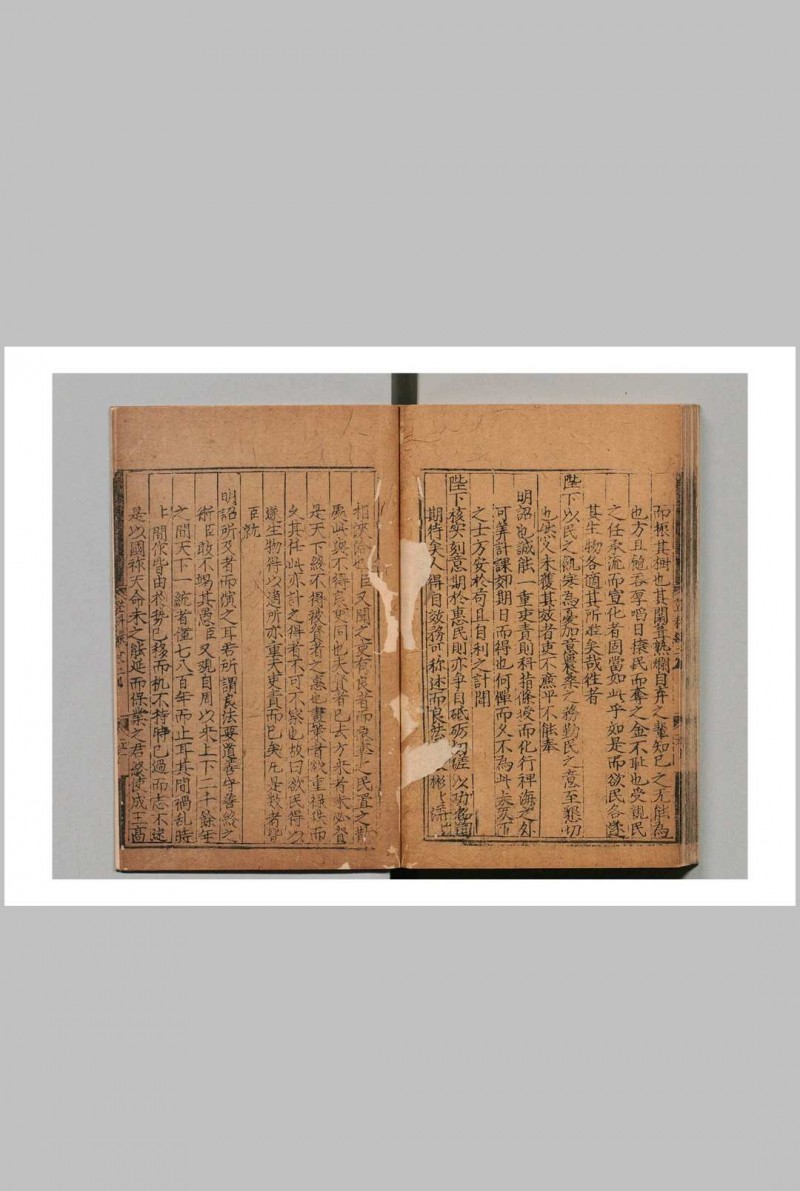 而振其樹也其閒葺熟爛自弃之輩知己之无能為
也方且飽吞厚啗日攘民而奪之金不恥也受親民
之任承流而宣化者固當如此乎如是而欲民各遂
其生物各適其所难矣哉徃者
陛下以民之飢寒為憂加意農桒之務勤民之意至懇切
也然又未獲其效者吏不應平不能奉
明詔也誠能一重吏責則科指條授而化行裨海之外
可筭計課刻期日而得也何憚而又不為此天下
之士方安於苟且自利之計聞
陛下核实刻意期於惠民則亦爭自砥砺切磋以功名自
期待矣人得自效務可称述而良彬
也臣又聞之吏有良者而之民置之
處此與不得良吏同也夫賢者已去方来者未必賢
是天下終不得被賢者之惠也者欲重禄而
久其任此亦計之得者不可不察也故曰欲民得以
遂生物得以適所亦重夫吏責而已矣凡是数者皆
臣就
明詔所及者而演之耳若所謂良法要道善守善救之
術臣敢不竭其愚臣又覌自周以来上下二千餘年
之間天下一統者僅七八百年而止耳其間禍乱時
上間作皆由於势已移而机不持時已過而志不逮
是以國祚天命未之能延而保業之君使成王高